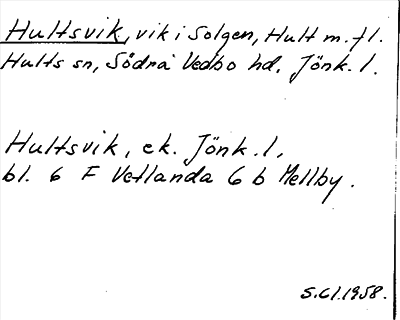 Hultsvik, vik i Solgen, Hult m. fl.
Hults sn, Södra Vedbo hd, Jönk. l.
Hultsvik, ek. Jönk. l,
bl. 6 F Vetlanda 6 b Mellby.
S.Cl.1958.